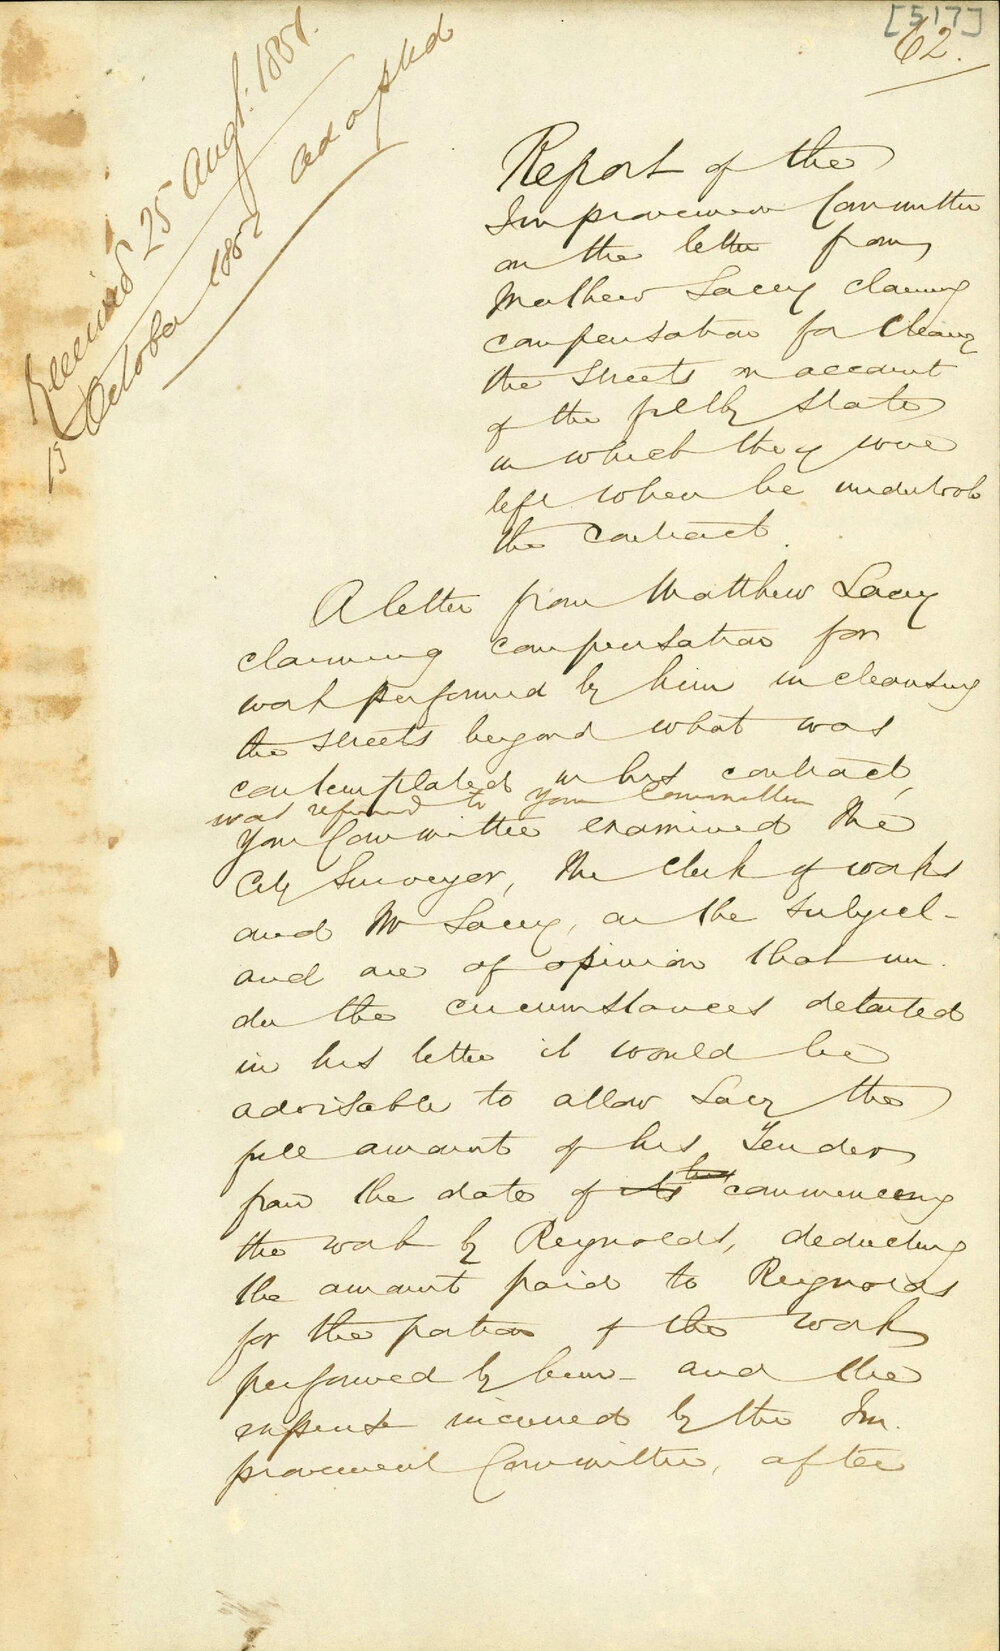 [517]
62.
Received 25 Augt. 1851.
15 October 1851 adopted
Report of the
Improvement Committee
on the letter from
Mathew Lacey claiming
compensation for cleang
the Streets on account
of the filthy state
in which they were
left when he undertook
the contract.
A letter from Matthew Lacey
claiming compensation for
work performed by him in cleansing
the streets beyond what was
contemplated in his contract,
was referred to your Committee
Your Committee examined the
City Surveyor, the Clerk of works
and Mr Lacey, on the subject-
and are of opinion that un.
der the circumstances detailed
in his letter it would be
advisable to allow Lacey the
full amount of his Tender
from the date of his commencing
the work by Reynolds, deducting
the amount paid to Reynolds
for the portion of the work
performed by him - and the
expense incurred by the Im.
provement Committee, after